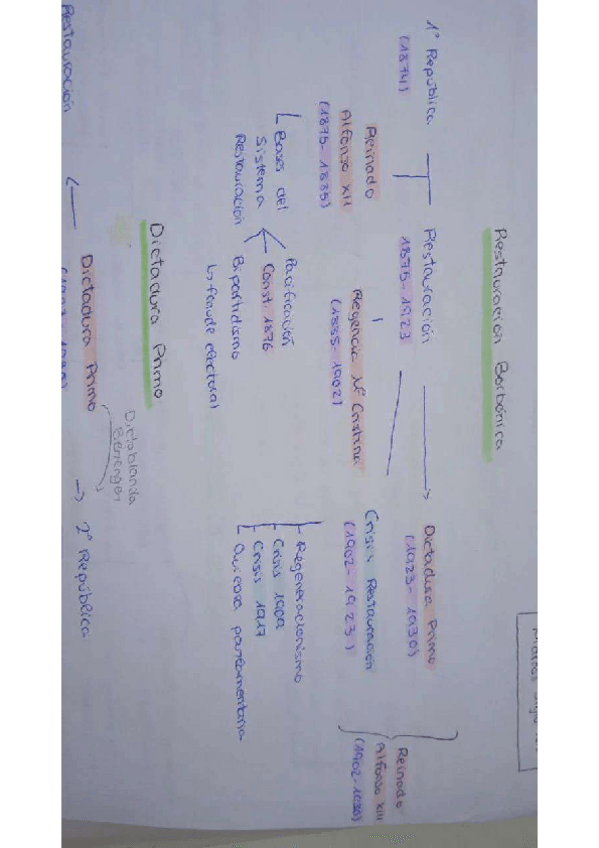 Restauración Borbónica
1º República
(1874)
Restauración
1875-1923
Dictadura Primo
(1923-1930)
Reinado
Alfonso XII
(1875-1885)
Regencia Mª Cristina
(1885-1902)
Crisis Restauración
(1902-1923)
Reinado
Alfonso XIII
(1902-1930)
Bases del
Sistema
Restauración
Pacificación
Const. 1876
Bipartidismo
↳ fraude electoral
Regeneracionismo
Crisis 1909
Crisis 1917
parlamentaria
Dictadura Primo
Restauración
Dictadura Primo
Dictablanda
Berenger
→ 2º República